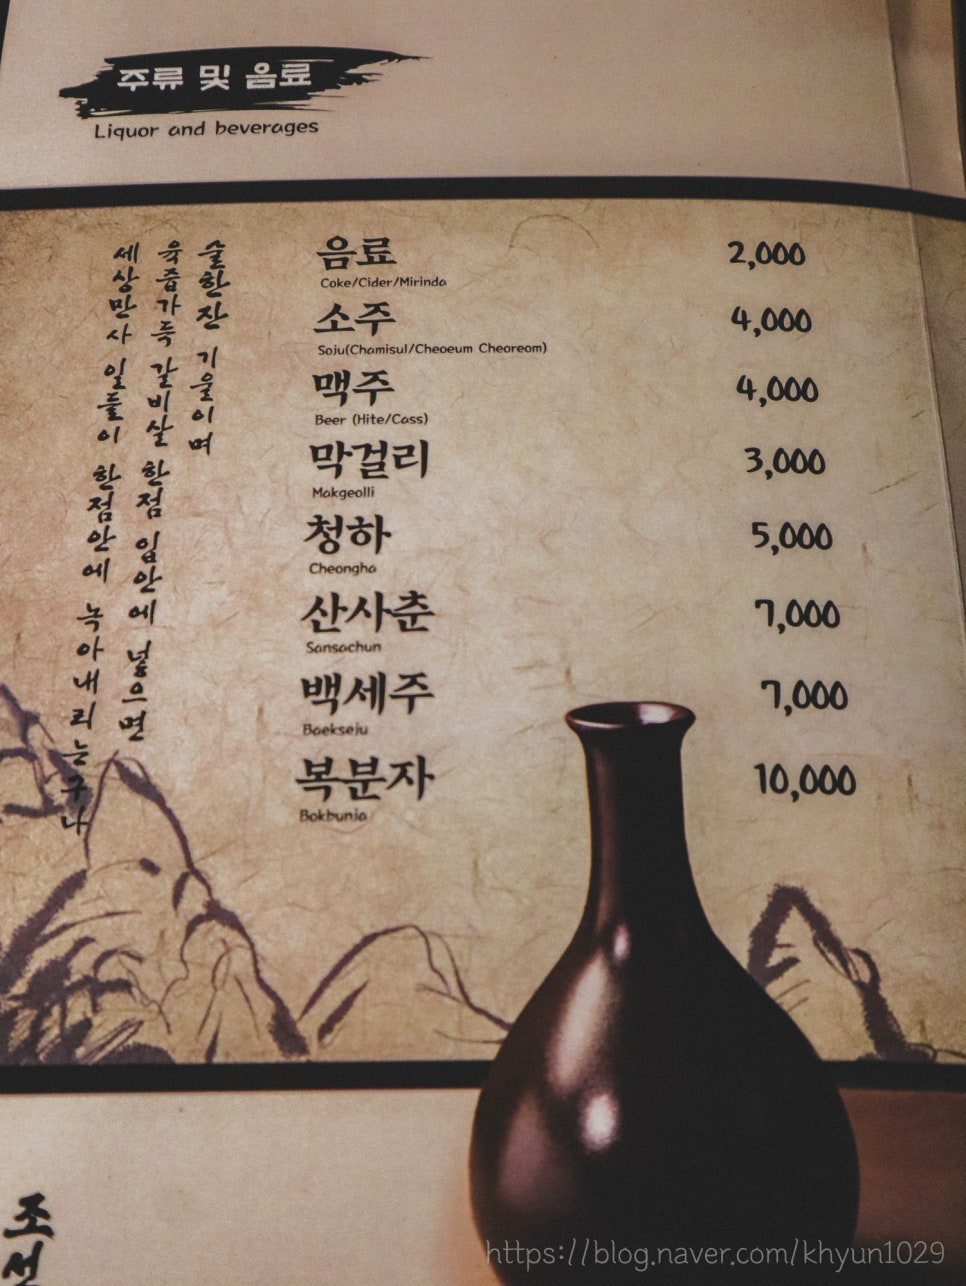 주류 및 음료
Liquor and beverages
술한잔 기울이며
육즙가득 갈비살 한점 입안에 넣으면
세상만사 일들이 한점안에 녹아내리는구나
음료 2,000
Coke/Cider/Mirinda
소주 4,000
Soju(Chamisul/Cheoeum Cheoreom)
맥주 4,000
Beer (Hite/Cass)
막걸리 3,000
Makgeolli
청하 5,000
Cheongha
산사춘 7,000
Sansachun
백세주 7,000
Baekseju
복분자 10,000
Bokbunja
조선
https://blog.naver.com/khyun1029